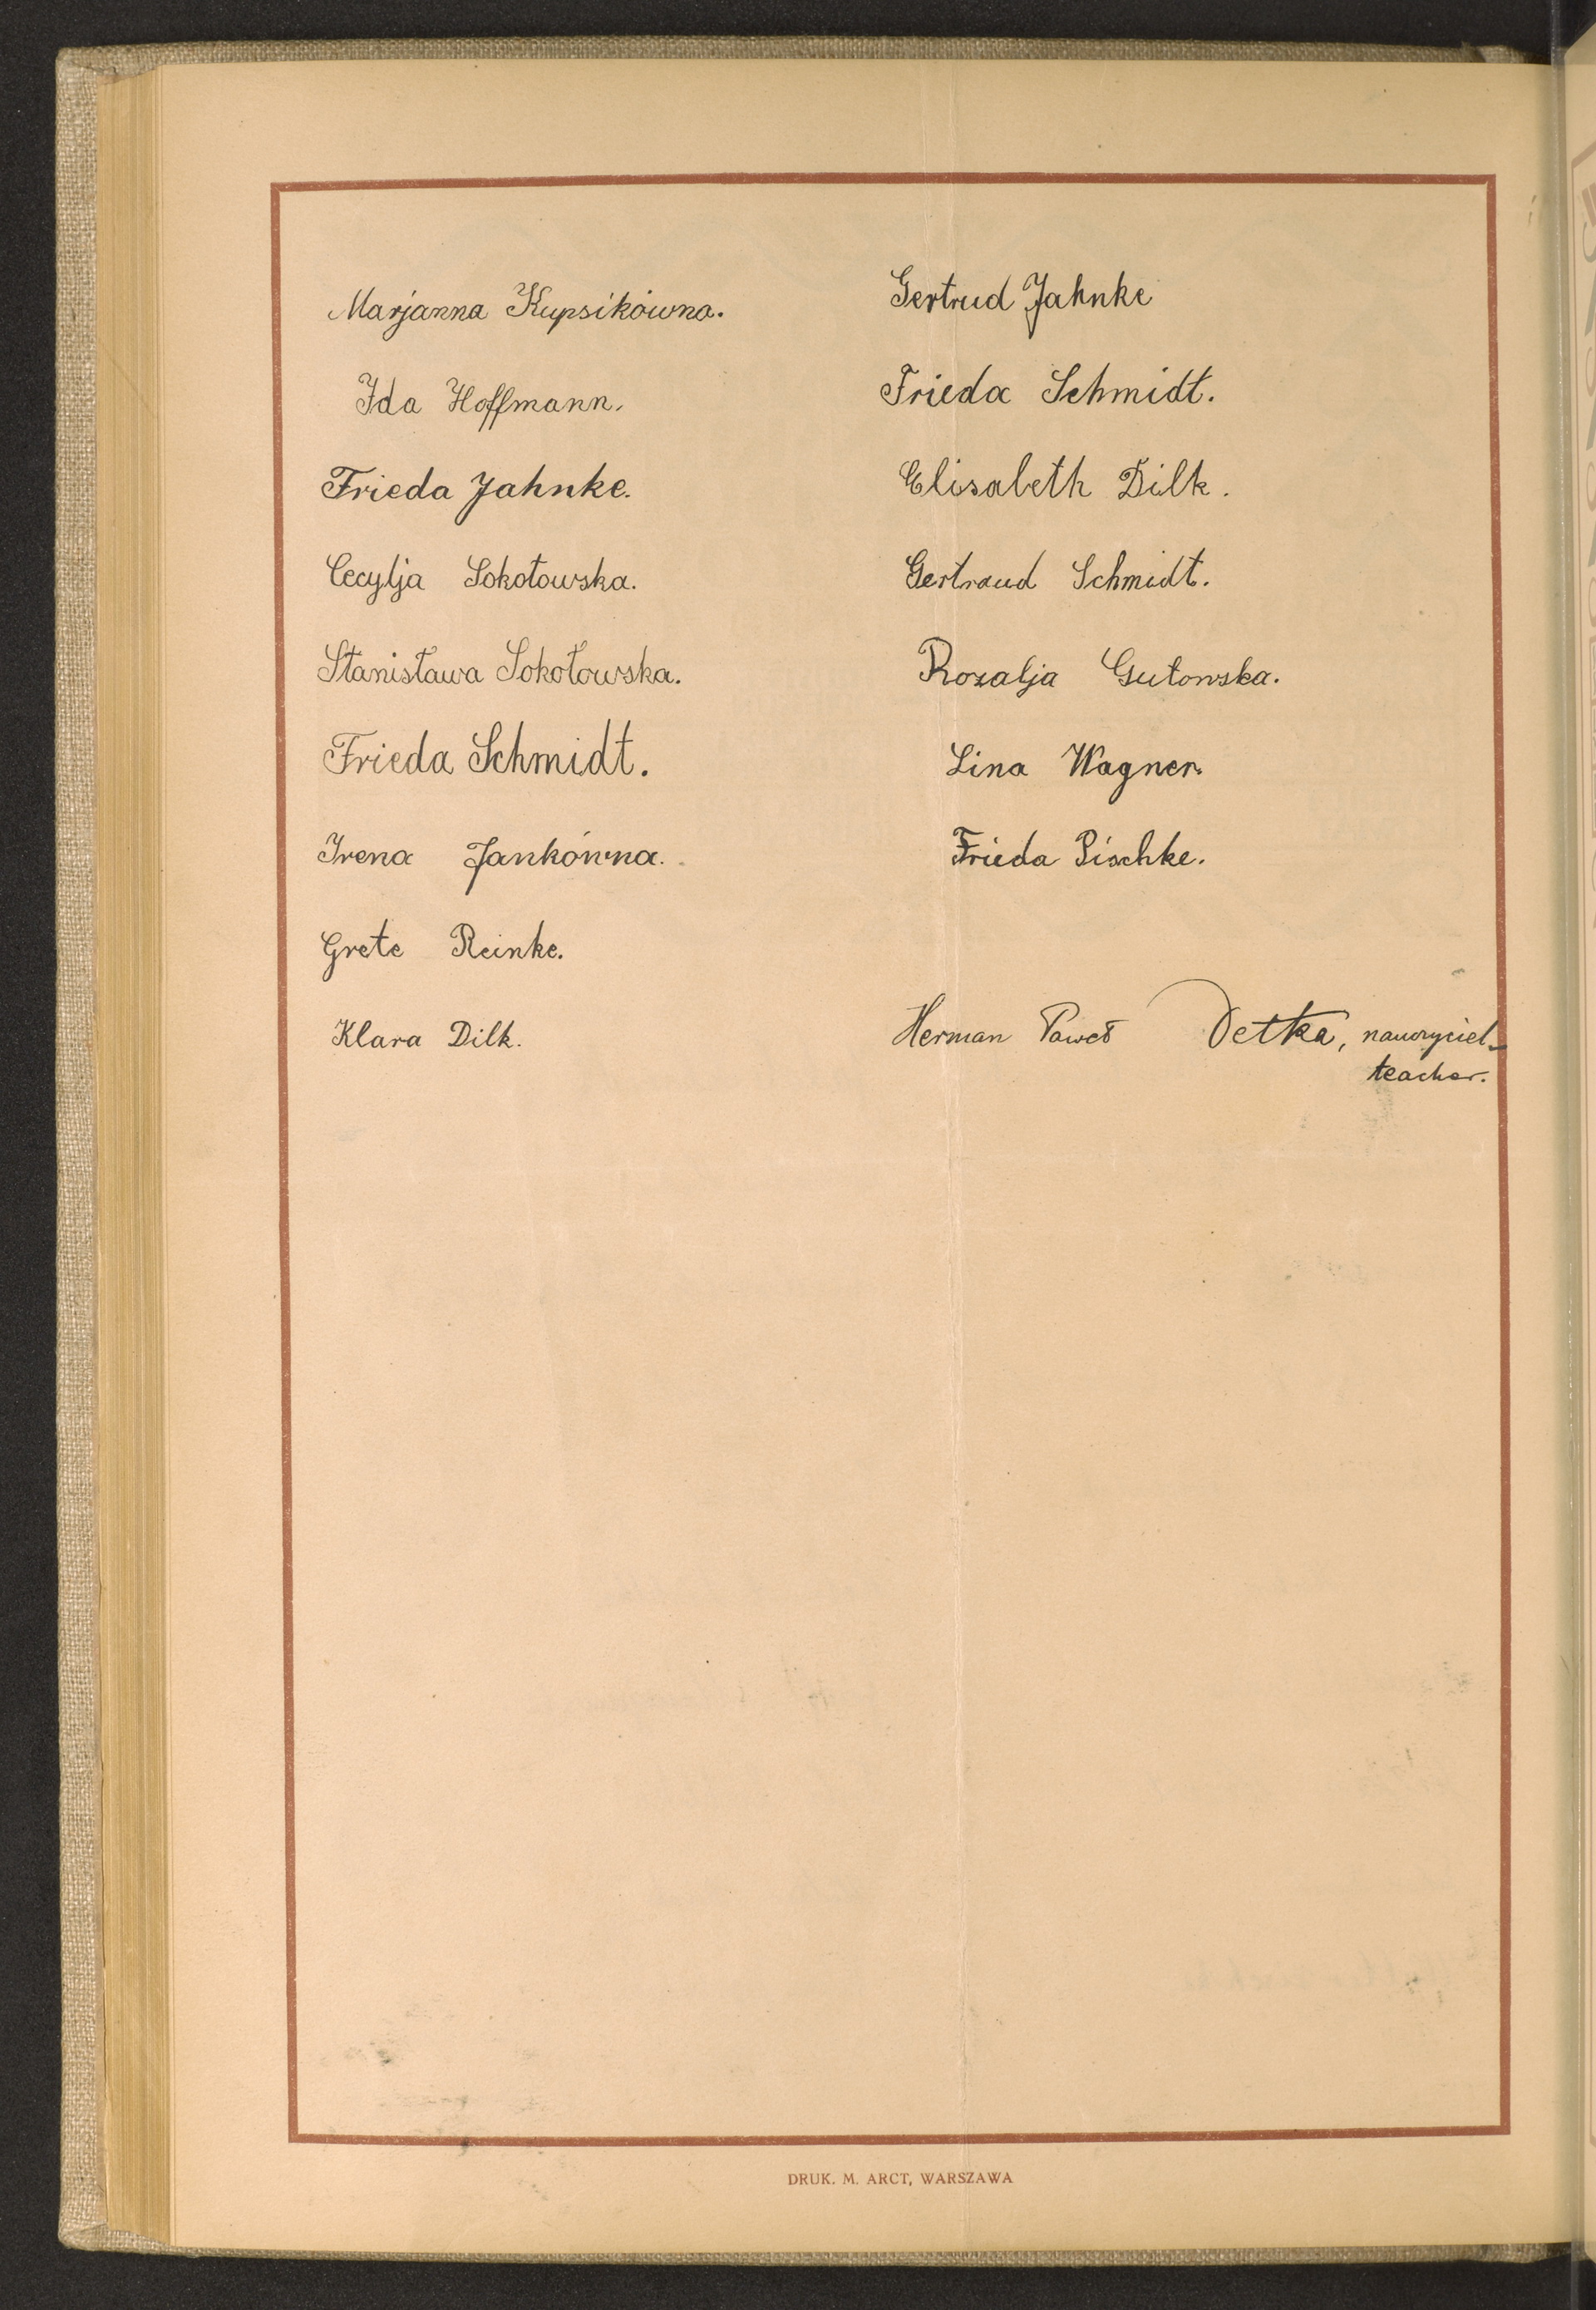 Marjanna Kupsikówna.
Ida Hoffmann.
Frieda Jahnke.
Cecylja Sokołowska.
Stanisława Sokołowska.
Frieda Schmidt.
Irena Jankówna.
Grete Reinke.
Klara Dilk.
Gertrud Jahnke
Frieda Schmidt.
Elisabeth Dilk.
Gertraud Schmidt.
Rozalja Gutowska.
Lina Wagner.
Frieda Pischke.
Herman Paweł Detka, nauczyciel-
teacher.
DRUK. M. ARCT, WARSZAWA